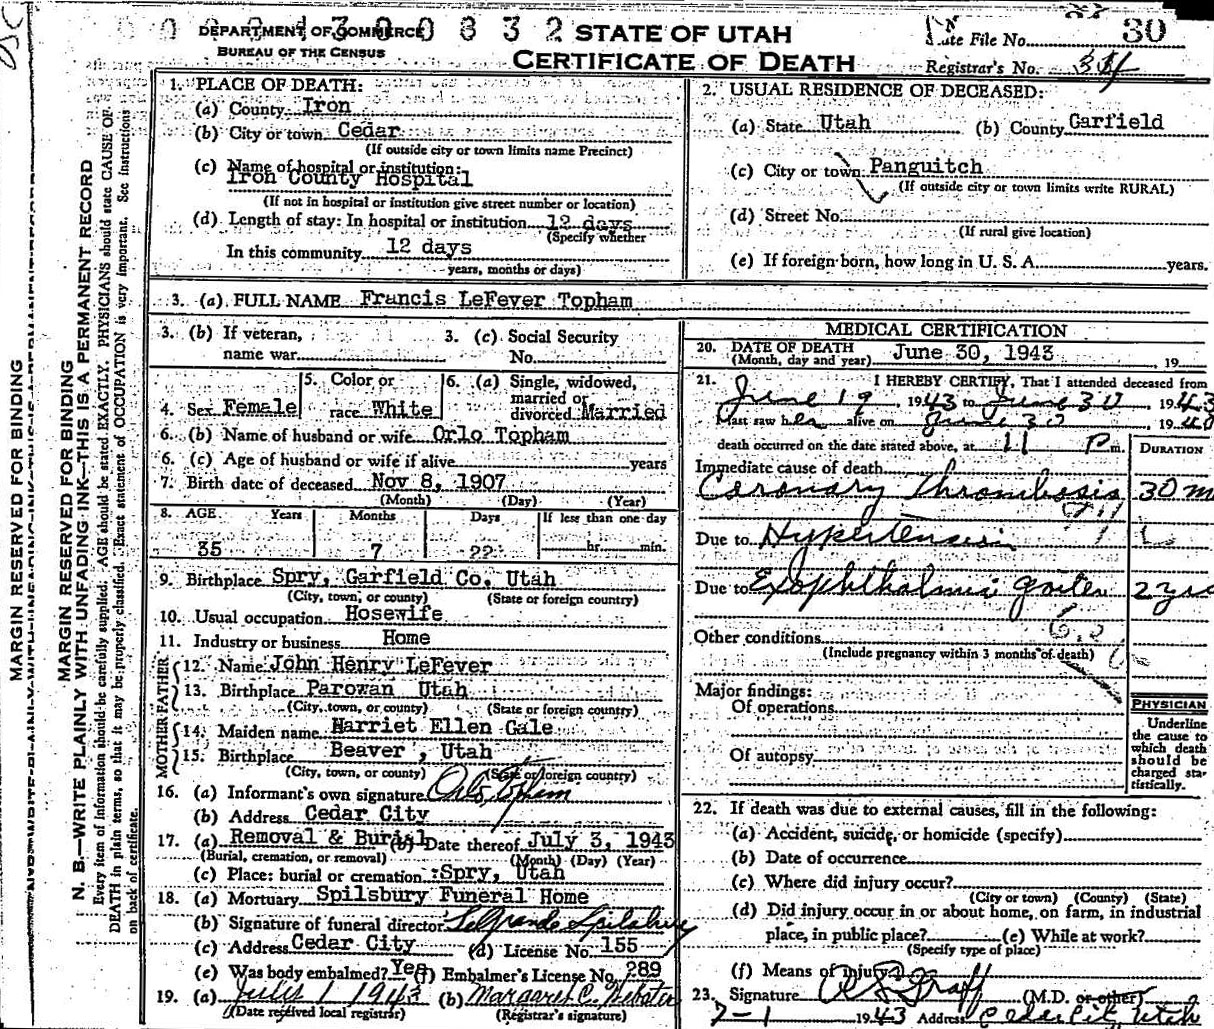 DEPARTMENT OF COMMERCE
BUREAU OF THE CENSUS
STATE OF UTAH
CERTIFICATE OF DEATH
State File No. 30
Registrar's No.
MARGIN RESERVED FOR BINDING
MARGIN RESERVED FOR BINDING
N. B.—WRITE PLAINLY WITH UNFADING INK—THIS IS A PERMANENT RECORD
Every item of information should be carefully supplied. AGE should be stated EXACTLY. PHYSICIANS should state CAUSE OF
DEATH in plain terms, so that it may be properly classified. Exact statement of OCCUPATION is very important. See instructions
on back of certificate.
1. PLACE OF DEATH:
(a) County Iron
(b) City or town Cedar
(If outside city or town limits name Precinct)
(c) Name of hospital or institution:
Iron County Hospital
(If not in hospital or institution give street number or location)
(d) Length of stay: In hospital or institution 12 days
(Specify whether
In this community 12 days
years, months or days)
2. USUAL RESIDENCE OF DECEASED:
(a) State Utah (b) County Garfield
(c) City or town Panguitch
(If outside city or town limits write RURAL)
(d) Street No.
(If rural give location)
(e) If foreign born, how long in U. S. A. years.
3. (a) FULL NAME Francis LeFever Topham
3. (b) If veteran, name war
3. (c) Social Security No.
4. Sex Female
5. Color or race White
6. (a) Single, widowed, married or divorced Married
6. (b) Name of husband or wife Orlo Topham
6. (c) Age of husband or wife if alive years
7. Birth date of deceased Nov 8, 1907
(Month) (Day) (Year)
8. AGE Years Months Days If less than one day
35 7 22 hr. min.
9. Birthplace Spry, Garfield Co. Utah
(City, town, or county) (State or foreign country)
10. Usual occupation Hosewife
11. Industry or business Home
FATHER
12. Name John Henry LeFever
13. Birthplace Parowan Utah
(City, town, or county) (State or foreign country)
MOTHER
14. Maiden name Harriet Ellen Gale
15. Birthplace Beaver, Utah
(City, town, or county) (State or foreign country)
16. (a) Informant's own signature Orlo Topham
(b) Address Cedar City
17. (a) Removal & Burial (b) Date thereof July 3, 1943
(Burial, cremation, or removal) (Month) (Day) (Year)
(c) Place: burial or cremation: Spry, Utah
18. (a) Mortuary Spilsbury Funeral Home
(b) Signature of funeral director LeGrande Spilsbury
(c) Address Cedar City (d) License No. 155
(e) Was body embalmed? Yes (f) Embalmer's License No. 289
19. (a) July 1 1943 (b) Margaret C. Webster
(Date received local registrar) (Registrar's signature)
MEDICAL CERTIFICATION
20. DATE OF DEATH
(Month, day and year) June 30, 1943, 19
21. I HEREBY CERTIFY, That I attended deceased from
June 19, 1943 to June 30, 1943
I last saw her alive on June 30, 19
death occurred on the date stated above, at 11 P m.
DURATION
Immediate cause of death
Coronary Thrombosis 30 m
Due to Hypertension
Due to Exophthalmic goiter 2 yrs
Other conditions
(Include pregnancy within 3 months of death)
Major findings:
Of operations
Of autopsy
PHYSICIAN
Underline
the cause to
which death
should be
charged sta-
tistically.
22. If death was due to external causes, fill in the following:
(a) Accident, suicide, or homicide (specify)
(b) Date of occurrence
(c) Where did injury occur?
(City or town) (County) (State)
(d) Did injury occur in or about home, on farm, in industrial
place, in public place? (e) While at work?
(Specify type of place)
(f) Means of injury
23. Signature Graff (M.D. or other)
7-1 1943 Address Cedar City, Utah